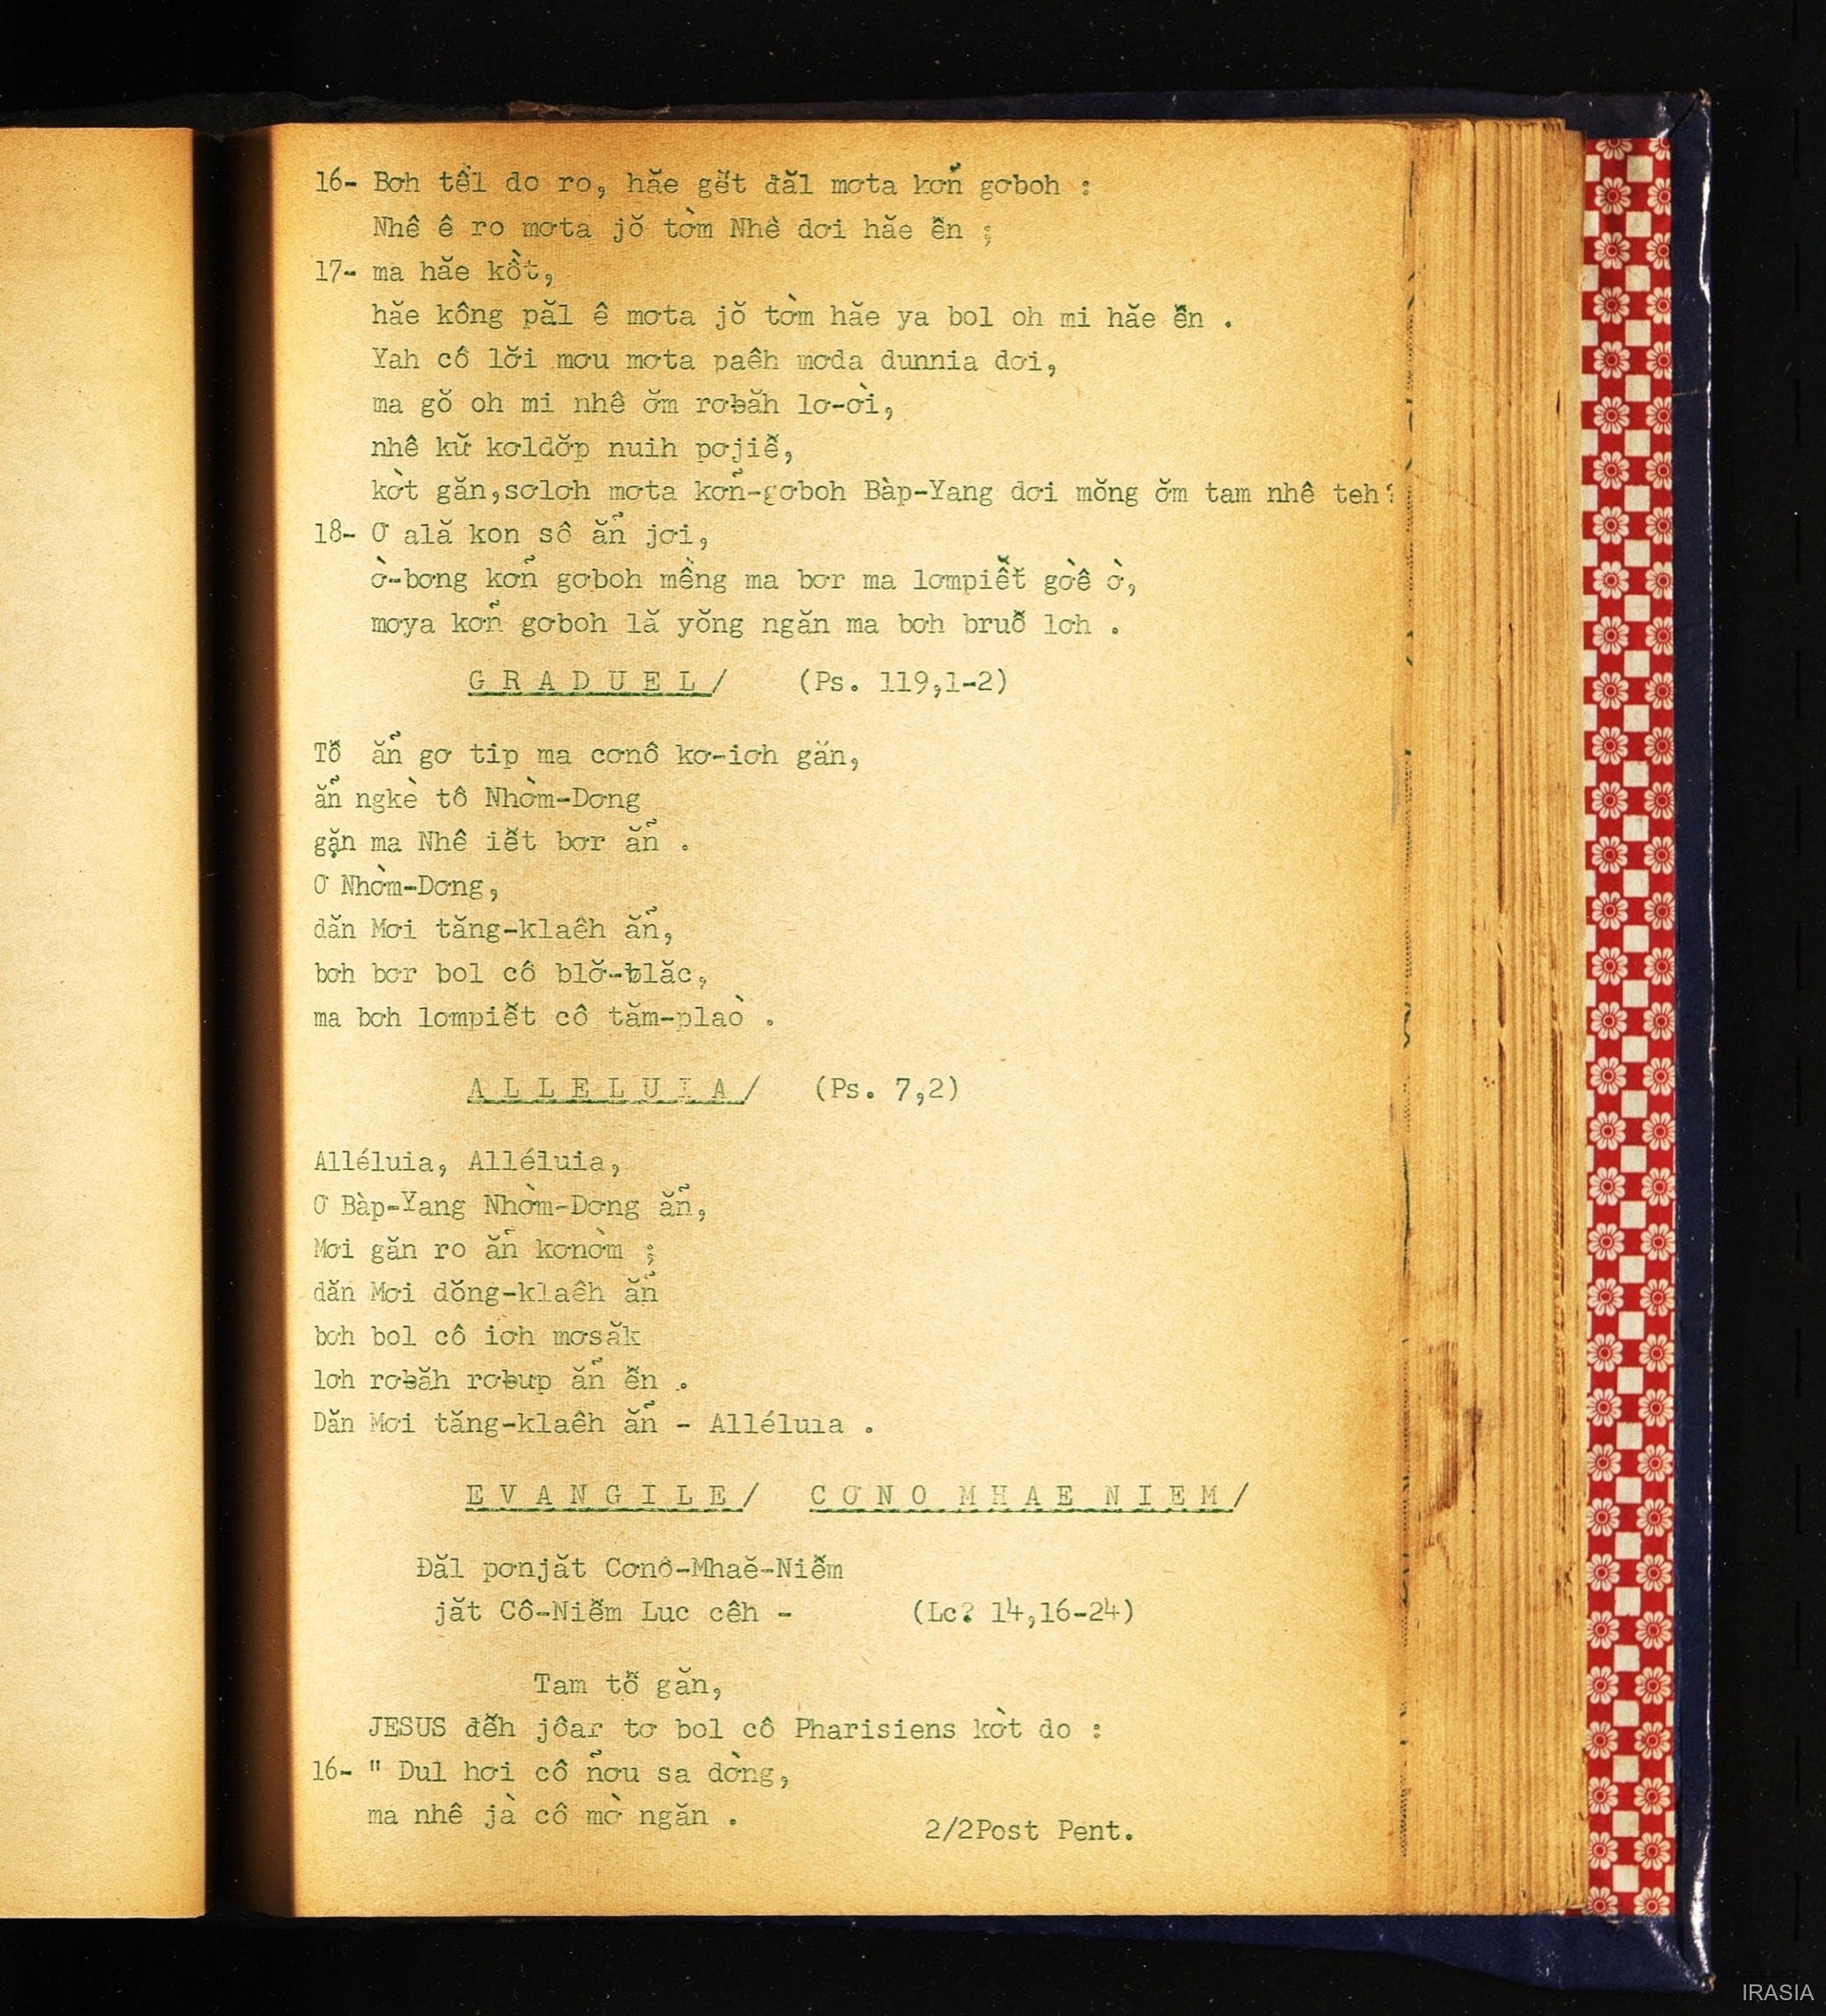 16- Bơh tềl do ro, hăe gĕt đăl mơta kơñ gơboh :
Nhê ê ro mơta jŏ tờm Nhê dơi hăe ền ;
17- ma hăe kồt,
hăe kông păl ê mơta jŏ tờm hăe ya bol oh mi hăe ền .
Yah cô lơ̆i mơu mơta paêh mơda dunnia dơi,
ma gŏ oh mi nhê ơ̆m rơƀăh lơ-ời,
nhê kư̆ kơldơ̆p nuih pơjiê̆,
kờt găn,sơlơh mơta kơñ-gơboh Bàp-Yang dơi mŏng ơ̆m tam nhê teh?
18- Ơ ală kon sô ăñ jơi,
ờ-bơng kơñ gơboh mềng ma bơr ma lơmpiê̆t gờê ờ,
mơya kơñ gơboh lă yŏng ngăn ma bơh bruô̆ lơh .
G R A D U E L/ (Ps. 119,1-2)
Tô̆ ăñ gơ tip ma cơnô kơ-iơh găn,
ăñ ngkè tô Nhờm-Dơng
gặn ma Nhê iê̆t bơr ăñ .
Ơ Nhờm-Dơng,
dăn Mơi tăng-klaêh ăñ,
bơh bơr bol cô blơ̆-blăc,
ma bơh lơmpiê̆t cô tăm-plaò .
A L L E L U I A/ (Ps. 7,2)
Alléluia, Alléluia,
Ơ Bàp-Yang Nhờm-Dơng ăñ,
Mơi găn ro ăñ kơnờm ;
dăn Mơi dŏng-klaêh ăñ
bơh bol cô iơh mơsăk
lơh rơƀăh rơƀup ăñ ê̆n .
Dăn Mơi tăng-klaêh ăñ - Alléluia .
E V A N G I L E/ C Ơ N O M H A E N I E M/
Đăl pơnjăt Cơnô-Mhaĕ-Niê̆m
jăt Cô-Niê̆m Luc cêh - (Lc? 14,16-24)
Tam tô̆ găn,
JESUS đê̆h jôar tơ bol cô Pharisiens kờt do :
16- " Dul hơi cô ñơu sa dờng,
ma nhê jà cô mờ ngăn .
2/2Post Pent.
IRASIA